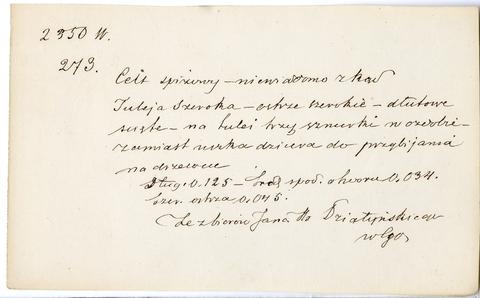 2350 W.
273.
Celt spiżowy – niewiadomo zkąd
Tuleja szeroka – ostrze szerokie – dłutowe
– na tulei trzy sznurki w ozdobie –
zamiast uszka dziura do przybijania
na drzewcu
Dług. 0.125 – Śred. spod. otworu 0.034.
Szer. ostrza 0.045.
Ze zbiorów Jana Działyńskiego